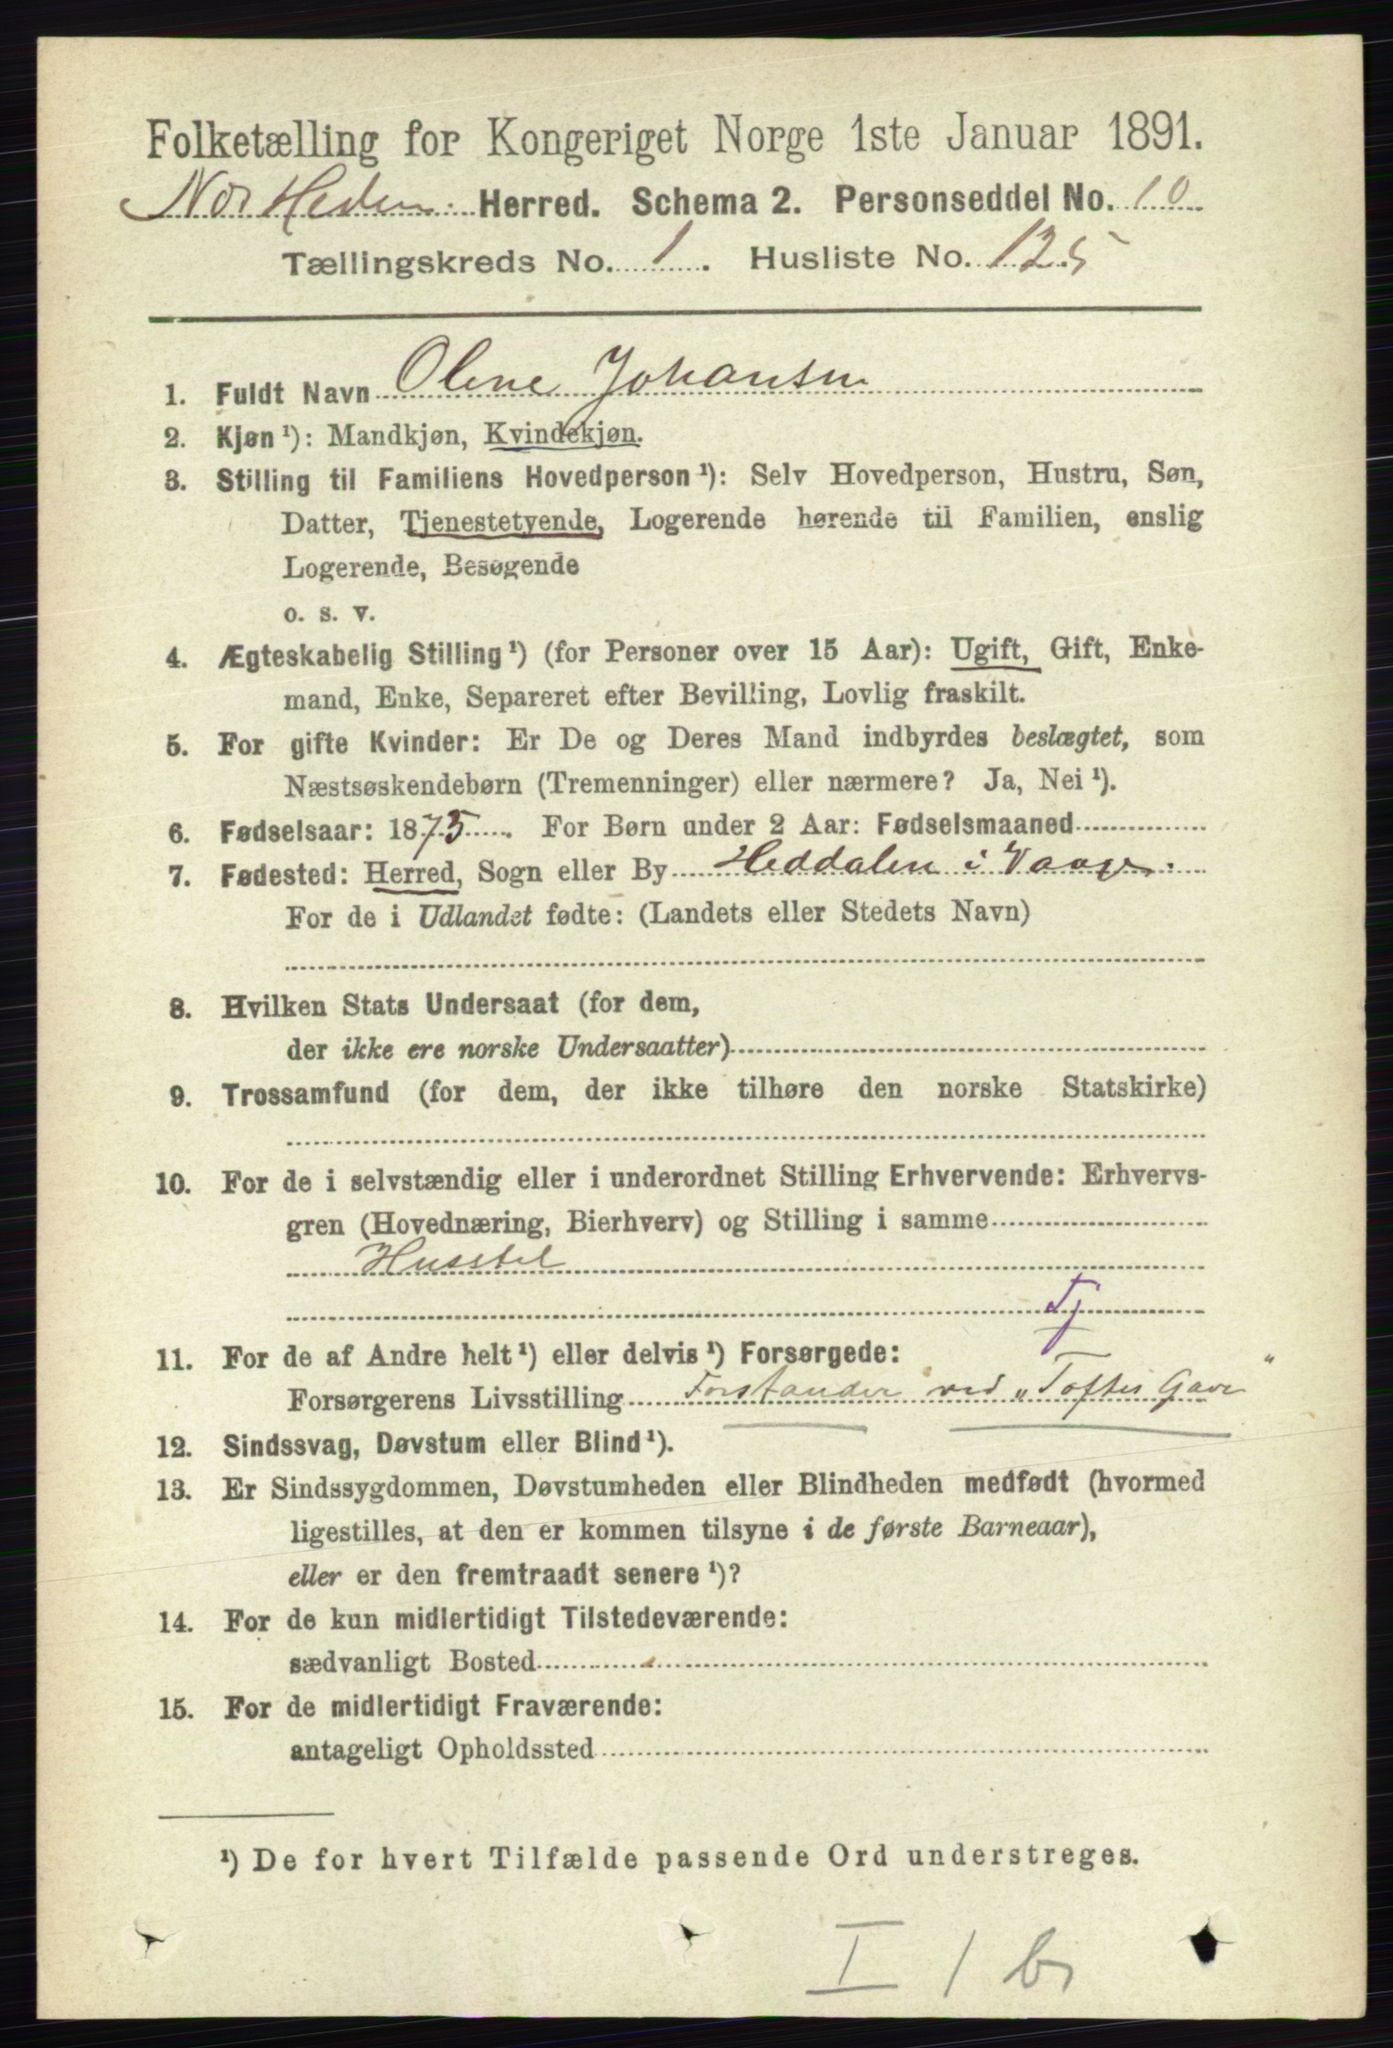 Folketælling for Kongeriget Norge 1ste Januar 1891.
Nor Hedem. Herred. Schema 2. Personseddel No. 10
Tællingskreds No. 1. Husliste No. 125
1. Fuldt Navn Olene Johansen
2. Kjøn¹): Mandkjøn, Kvindekjøn.
3. Stilling til Familiens Hovedperson¹): Selv Hovedperson, Hustru, Søn,
Datter, Tjenestetyende, Logerende hørende til Familien, enslig
Logerende, Besøgende
o. s. v.
4. Ægteskabelig Stilling¹) (for Personer over 15 Aar): Ugift, Gift, Enke-
mand, Enke, Separeret efter Bevilling, Lovlig fraskilt.
5. For gifte Kvinder: Er De og Deres Mand indbyrdes beslægtet, som
Næstsøskendebørn (Tremenninger) eller nærmere? Ja, Nei¹).
6. Fødselsaar: 1873. For Børn under 2 Aar: Fødselsmaaned
7. Fødested: Herred, Sogn eller By Heddalen i Vaage.
For de i Udlandet fødte: (Landets eller Stedets Navn)
8. Hvilken Stats Undersaat (for dem,
der ikke ere norske Undersaatter)
9. Trossamfund (for dem, der ikke tilhøre den norske Statskirke)
10. For de i selvstændig eller i underordnet Stilling Erhvervende: Erhvervs-
gren (Hovednæring, Bierhverv) og Stilling i samme
Husstel
Tj
11. For de af Andre helt¹) eller delvis¹) Forsørgede:
Forsørgerens Livsstilling Forstander ved "Toftes Gave"
12. Sindssvag, Døvstum eller Blind¹).
13. Er Sindssygdommen, Døvstumheden eller Blindheden medfødt (hvormed
ligestilles, at den er kommen tilsyne i de første Barneaar),
eller er den fremtraadt senere¹)?
14. For de kun midlertidigt Tilstedeværende:
sædvanligt Bosted
15. For de midlertidigt Fraværende:
antageligt Opholdssted
¹) De for hvert Tilfælde passende Ord understreges.
I 1 b